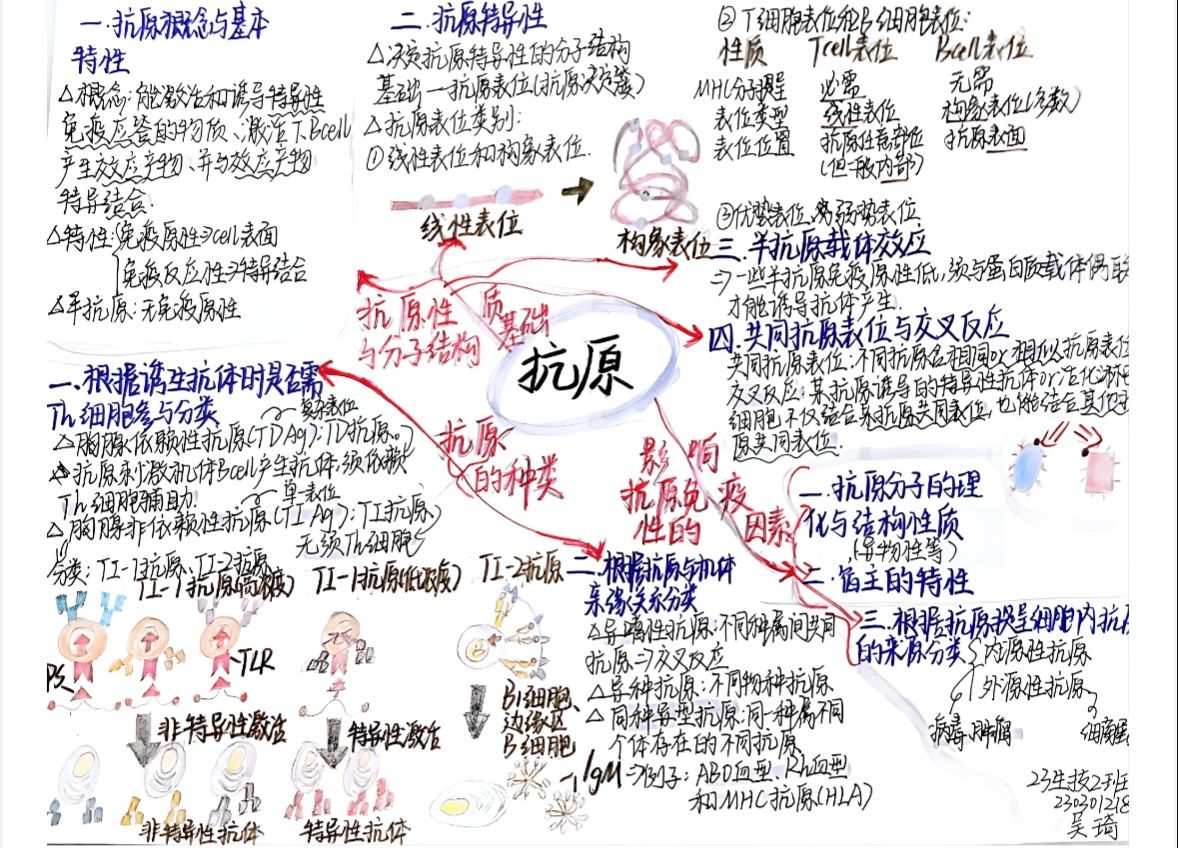 一.抗原概念与基本
特性
△概念:能激活和诱导特异性
免疫应答的物质、激活T.Bcell
产生效应产物、并与效应产物
特异结合.
△特性:免疫原性⇒cell表面
免疫反应性⇒特异结合
△半抗原:无免疫原性
二.抗原特异性
△决定抗原特异性的分子结构
基础—抗原表位(抗原决定簇)
△抗原表位类别:
①线性表位和构象表位.
线性表位
构象表位
②T细胞表位和B细胞表位:
性质 Tcell表位 Bcell表位
MHC分子提呈 必需 无需
表位类型 线性表位 构象表位(多数)
表位位置 抗原任意部位 抗原表面
(但一般内部)
③优势表位、弱势表位
三.半抗原载体效应
⇒一些半抗原免疫原性低,须与蛋白质载体偶联
才能诱导抗体产生.
四.共同抗原表位与交叉反应
共同抗原表位:不同抗原含相同or相似抗原表位
交叉反应:某抗原诱导的特异性抗体or活化淋巴
细胞,不仅结合某抗原共同表位,也能结合其他
原共同表位.
抗原
抗原性 质
与分子结构 基础
抗原
的种类
影响
抗原免疫
性的 因素
一.抗原分子的理
化与结构性质
(异物性等)
二.宿主的特性
一.根据诱生抗体时是否需
Th细胞参与分类
复杂表位
△胸腺依赖性抗原(TDAg):TD抗原
抗原刺激机体Bcell产生抗体,须依赖
Th细胞辅助
单表位
△胸腺非依赖性抗原(TIAg):TI抗原
无须Th细胞
分类:TI-1抗原、TI-2抗原
TI-1抗原(高浓度) TI-1抗原(低浓度) TI-2抗原
TLR
非特异性激活
特异性激活
B1细胞、
边缘区
B细胞
IgM
非特异性抗体 特异性抗体
二.根据抗原与机体
亲缘关系分类
△异嗜性抗原:不同种属间共同
抗原⇒交叉反应
△异种抗原:不同物种抗原
△同种异型抗原:同一种属不同
个体存在的不同抗原
⇒例子:ABO血型、Rh血型
和MHC抗原(HLA)
三.根据抗原提呈细胞内抗原
的来源分类
内源性抗原
外源性抗原
病毒、肿瘤
23生技2班
230301218
吴琦